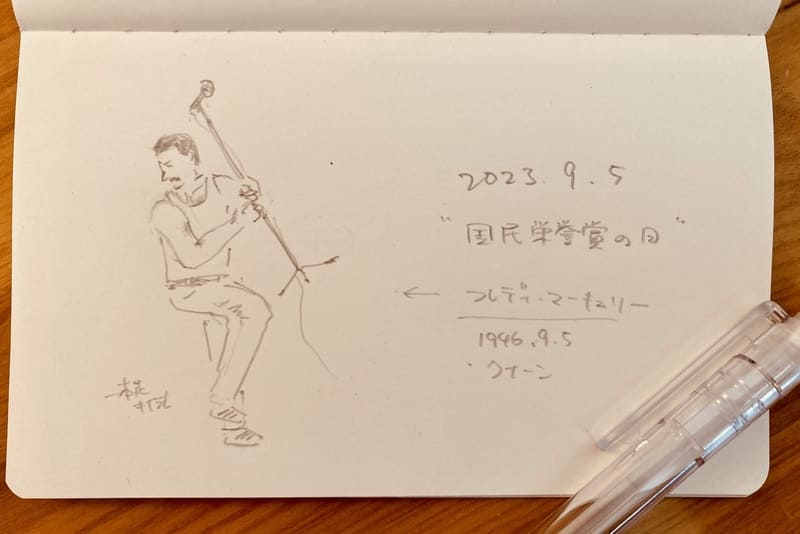 2023.9.5
"国民栄誉賞の日"
← フレディ・マーキュリー
1946.9.5
・クイーン
一本足打法